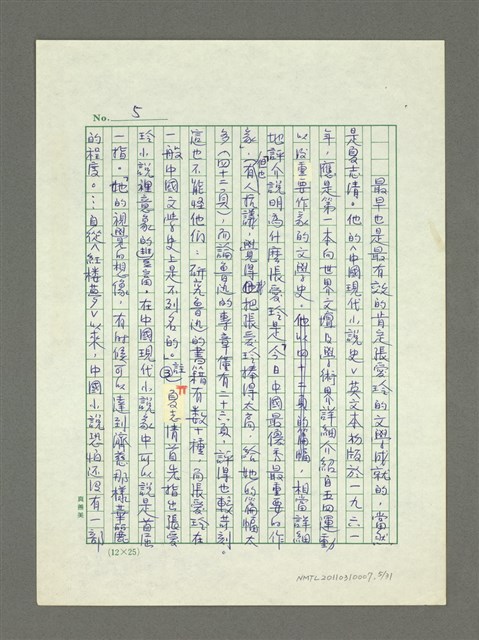 No. 5
最早也是最有效的肯定張愛玲的文學成就的,當然
是夏志清。他的〈中國現代小說史〉英文本初版於一九六一
年,應是第一本向世界文壇及學術界詳細介紹自五四運動
以後重要作家的文學史。他以四十二頁的篇幅,相當詳細
地評介說明為什麼張愛玲是「今日中國最優秀最重要的作
家」(有人抗議,覺得他把張愛玲捧得太高,給她的篇幅太
多(四十二頁),而論魯迅的專章僅有二十六頁,評得也較苛刻。
這也不能怪他們:研究魯迅的書籍有數十種,而張愛玲在
一般中國文學史上是不列名的。註③夏志清首先指出張愛
玲小說裡意象的豐富,在中國現代小說家中可以說是首屈
一指。「她的視覺的想像,有時候可以達到濟慈那樣華麗
的程度。…自從〈紅樓夢〉以來,中國小說恐怕還沒有一部
(12×25)
NMTL20110310007, 5/31